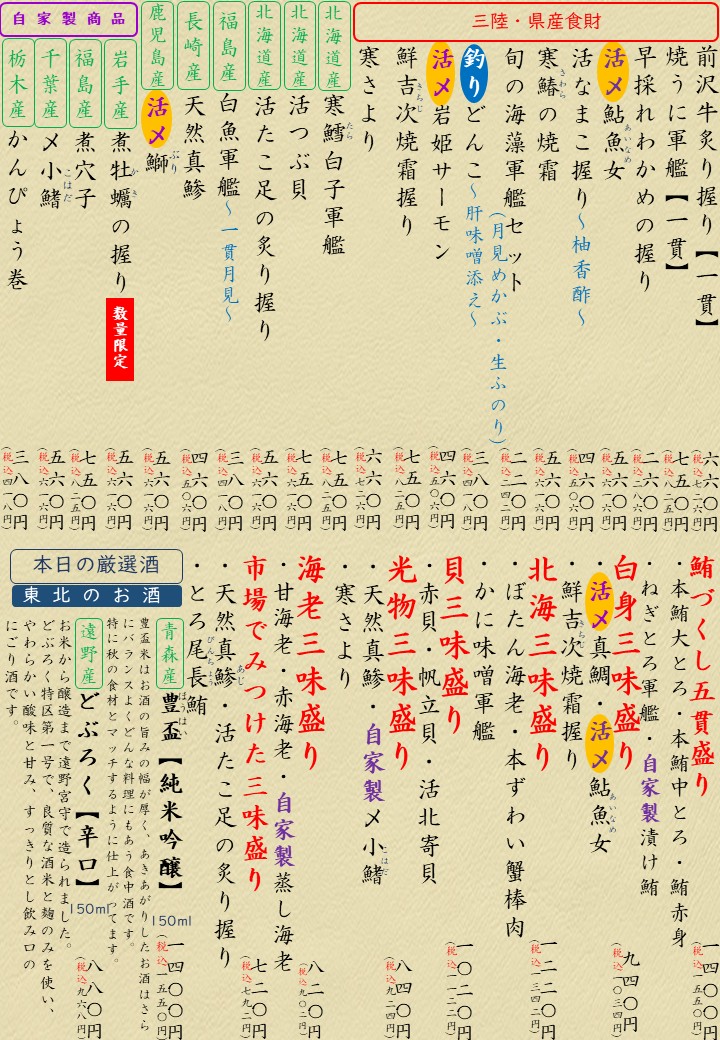 三陸・県産食財
前沢牛炙り握り【一貫】 六六〇円(税込七二六円)
焼うに軍艦【一貫】 七五〇円(税込八二五円)
早採れわかめの握り 二六〇円(税込二八六円)
活〆鮎魚女 五六〇円(税込六一六円)
あいなめ
活なまこ握り～柚香酢～ 四六〇円(税込五〇六円)
寒鰆の焼霜 五六〇円(税込六一六円)
さわら
旬の海藻軍艦セット 二二〇円(税込二四二円)
(月見めかぶ・生ふのり)
釣りどんこ～肝味噌添え～ 三八〇円(税込四一八円)
活〆岩姫サーモン 四六〇円(税込五〇六円)
鮮吉次焼霜握り 七五〇円(税込八二五円)
きちじ
寒さより 六六〇円(税込七二六円)
北海道産
寒鱈白子軍艦 七五〇円(税込八二五円)
たら
北海道産
活つぶ貝 七五〇円(税込八二五円)
北海道産
活たこ足の炙り握り 五六〇円(税込六一六円)
福島産
白魚軍艦～一貫月見～ 三八〇円(税込四一八円)
長崎産
天然真鯵 四六〇円(税込五〇六円)
鹿児島産
活〆鰤 五六〇円(税込六一六円)
ぶり
自家製商品
岩手産
煮牡蠣の握り 数量限定 五六〇円(税込六一六円)
かき
福島産
煮穴子 七五〇円(税込八二五円)
千葉産
〆小鰭 五六〇円(税込六一六円)
こはだ
栃木産
かんぴょう巻 三八〇円(税込四一八円)
鮪づくし五貫盛り 一四〇〇円(税込一五五〇円)
・本鮪大とろ・本鮪中とろ・鮪赤身
・ねぎとろ軍艦・自家製漬け鮪
白身三味盛り 九四〇円(税込一〇三四円)
・活〆真鯛・活〆鮎魚女
あいなめ
・鮮吉次焼霜握り
きちじ
北海三味盛り 一二二〇円(税込一三四二円)
・ぼたん海老・本ずわい蟹棒肉
・かに味噌軍艦
貝三味盛り 一〇二〇円(税込一一二二円)
・赤貝・帆立貝・活北寄貝
光物三味盛り 八四〇円(税込九二四円)
・天然真鯵・自家製〆小鰭
こはだ
・寒さより
海老三味盛り 八二〇円(税込九〇二円)
・甘海老・赤海老・自家製蒸し海老
市場でみつけた三味盛り 七二〇円(税込七九二円)
・天然真鯵・活たこ足の炙り握り
あじ
・とろ尾長鮪
びんちょう
本日の厳選酒
東北のお酒
青森産
豊盃【純米吟醸】 150ml 一四〇〇円(税込一五五〇円)
ほうはい
豊盃米はお酒の旨みの幅が厚く、あきあがりしたお酒はさら
にバランスよくどんな料理にもあう食中酒です。
特に秋の食材とマッチするように仕上がってます。
遠野産
どぶろく【辛口】 150ml 八八〇円(税込九六八円)
お米から醸造まで遠野宮守で造られました。
どぶろく特区第一号で、良質な酒米と麹のみを使い、
やわらかい酸味と甘み、すっきりとし飲み口の
にごり酒です。